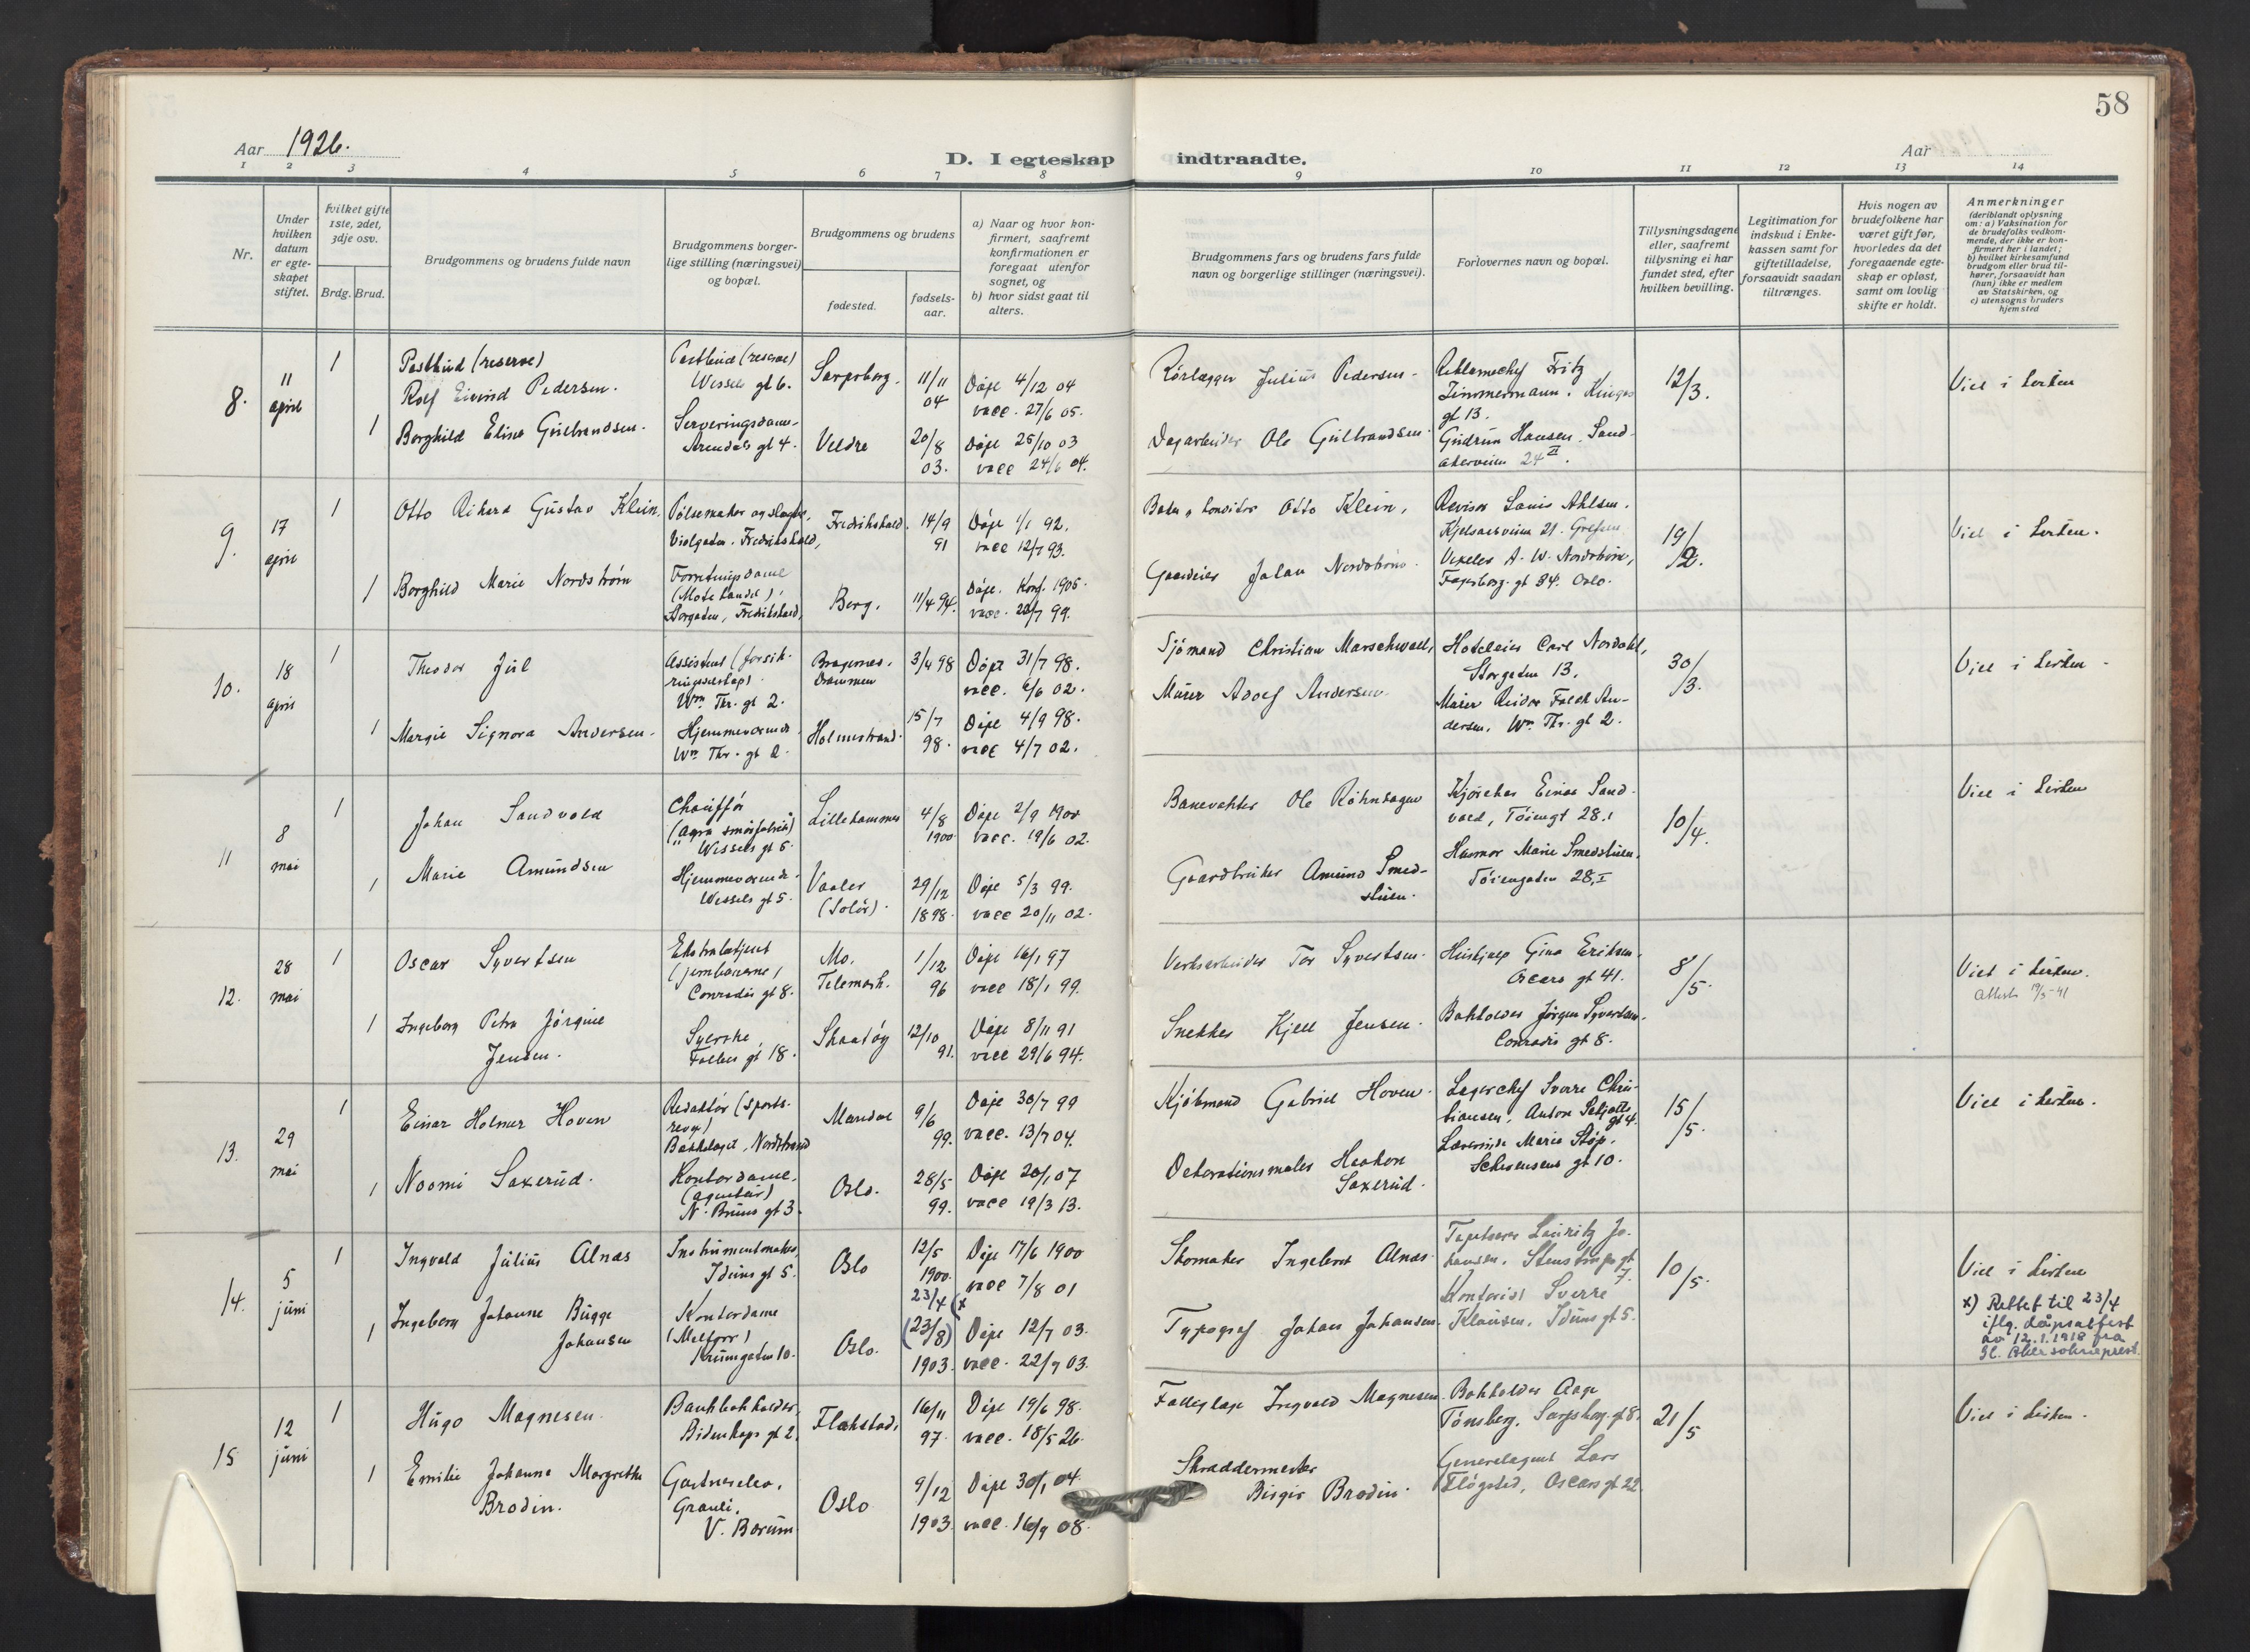 58
Aar 1926.
D. I egteskap indtraadte.
Aar
1 2 3 4 5 6 7 8 9 10 11 12 13 14
Nr.
Under
hvilken
datum
er egte-
skapet
stiftet.
hvilket gifte
1ste, 2det,
3dje osv.
Brdg. Brud.
Brudgommens og brudens fulde navn
Brudgommens borger-
lige stilling (næringsvei)
og bopæl.
Brudgommens og brudens
fødested.
fødsels-
aar.
a) Naar og hvor kon-
firmert, saafremt
konfirmationen er
foregaat utenfor
sognet, og
b) hvor sidst gaat til
alters.
Brudgommens fars og brudens fars fulde
navn og borgerlige stillinger (næringsvei).
Forlovernes navn og bopæl.
Tillysningsdagene
eller, saafremt
tillysning ei har
fundet sted, efter
hvilken bevilling.
Legitimation for
indskud i Enke-
kassen samt for
giftetilladelse,
forsaavidt saadan
tiltrænges.
Hvis nogen av
brudefolkene har
været gift før,
hvorledes da det
foregaaende egte-
skap er opløst,
samt om lovlig
skifte er holdt.
Anmerkninger
(deriblandt oplysning
om: a) Vaksination for
de brudefolks vedkom-
mende, der ikke er kon-
firmert her i landet;
b) hvilket kirkesamfund
brudgom eller brud til-
hører, forsaavidt han
(hun) ikke er medlem
av Statskirken, og
c) utensogns bruders
hjemsted
8.
11
april
1
Postbud (reserve)
Rolf Eivind Pedersen.
Postbud (reserve)
Wessels gt 6.
Sarpsborg.
11/11
04
Døpt 4/12 04
vacc. 27/6 05.
Rørlægger Julius Pedersen.
Reklamechef Fritz
Zimmermann. Kinges
gt 13.
12/3.
Viet i kirken
1
Borghild Elina Gulbrandsen.
Serveringsdame
Arendals gt 4.
Veldre
20/8
03.
Døpt 25/10 03
vacc 24/6 04.
Dagarbeider Ole Gulbrandsen.
Gudrun Hansen. Sand-
akerveien 24 II.
9.
17
april
1
Otto Rikard Gustav Klein.
Pølsemaker og slagter,
Violgaten. Fredrikshald,
Fredrikshald.
14/9
91
Døpt 1/1 92.
vacc 12/7 93.
Baker & konditor Otto Klein,
Revisor Louis Ahlsen.
Kjelsaasveien 21. Grefsen
19/2.
Viet i kirken.
1
Borghild Marie Nordstrøm
Forretningsdame
(Motehandel).
Borgaten, Fredrikshald,
Berg.
11/4 94.
Døpt. Konf. 1905.
vacc. 22/7 99.
Gaardeier Johan Nordstrøm.
A. W. Nordstrøm,
Fagerborg. gt 34. Oslo.
10.
18
april
1
Theodor Jul
Assistent (forsik-
ringsselskap)
Wm Thr. gt 2.
Bragernes.
Drammen
3/4 98
Døpt 31/7 98.
vacc. 6/6 02.
Sjømand Christian Marschwall,
Hoteleier Carl Nordahl,
Storgaten 13.
30/3.
Viet i kirken
1
Margit Signora Andersen.
Hjemmeværende
Wm Thr. gt 2.
Holmestrand.
15/7
98.
Døpt 4/9 98.
vacc 4/7 02.
Murer Adolf Andersen.
Murer Reidar Falck An-
dersen, Wm Thr. gt 2.
11
8
mai
1
Johan Sandvold
Chauffør
("Agra smørfabrik")
Wessels gt 5.
Lillehammer
4/8
1900
Døpt 2/9 1900
vacc. 19/6 02.
Banevokter Ole Røhnsagen
Einar Sand-
vold, Tøiengt 28.1
10/4.
Viet i kirken
1
Marie Amundsen
Hjemmeværende
Wessels gt 5.
Vaaler
(Solør).
29/12
1898.
Døpt 5/3 99.
vacc 20/11 02.
Gaardbruker Amund Smed-
stuen.
Husmor Marie Smedstuen,
Tøiengaten 28, I
12.
28
mai
1
Oscar Syvertsen
Ekstrabetjent
(jernbanerne)
Conradis gt 8.
Mo.
Telemark.
1/12
96
Døpt 16/1 97
vacc 18/1 99.
Verksarbeider Tor Syvertsen.
Hushjelp Gina Eriksen.
Oscars gt 41.
8/5.
Viet i kirken.
Attest 19/5-41
1
Ingeborg Petra Jørgine
Jensen.
Syerske
Falbes gt 18.
Skaatøy
12/10
91.
Døpt 8/11 91
vacc 29/6 94.
Snekker Kjell Jensen.
Bokholder Jørgen Syvertsen.
Conradis gt 8.
13.
29
mai
1
Einar Holmer Hoven
Redaktør (Sports-
revy)
Bækkelaget, Nordstrand
Mandal
9/6
99.
Døpt 30/7 99
vacc. 13/7 04.
Kjøbmand Gabriel Hoven.
Lagerchef Sverre Chri-
stiansen, Anton Schjøtts
gt 4.
15/5.
Viet i kirken.
1
Noomi Saxerud.
Kontordame.
(agentur)
N. Bruns gt 3.
Oslo.
28/5
99.
Døpt 20/1 07
vacc 19/3 13.
Dekorationsmaler Haakon
Saxerud.
Lærerinde Marie Støp.
Schwensens gt 10.
14.
5
juni
1
Ingvald Julius Alnæs
Instrumentmaker,
Iduns gt 5.
Oslo
12/5
1900.
Døpt 17/6 1900
vacc 7/8 01
Skomaker Ingebret Alnæs.
Tapetserer Lauritz Jo-
hansen. Stenstrups gt
7.
10/5.
Viet i kirken
1
Ingeborg Johanne Bugge
Johansen
Kontordame
Krumgaten 10.
Oslo.
23/4 (x
(23/8)
1903.
Døpt 12/7 03.
vacc. 22/9 03.
Typograf Johan Johansen.
Kontorist Sverre
Klausen. Iduns gt 5.
x) Rettet til 23/4
iflg. dåpsattest
av 12.1.1918 fra
Gl. Aker sokneprest.
15
12
juni
1
Hugo Magnesen.
Bankbokholder.
Bidenkaps gt 2.
Flakstad.
16/11
97.
Døpt 19/6 98.
vacc. 18/5 26.
Ingvald Magnesen.
Bokholder Aage
Tønsberg. Sarpsborg. gt 8.
21/5
Viet i kirken.
1
Emilie Johanne Margrethe
Brodin.
Gartnerelev.
Grauli,
V. Bærum.
Oslo
9/12
1903.
Døpt 30/1 04.
vacc. 16/9 08.
Skræddermester
Birger Brodin.
Generalagent Lars
Fløgstad, Oscars gt 22.